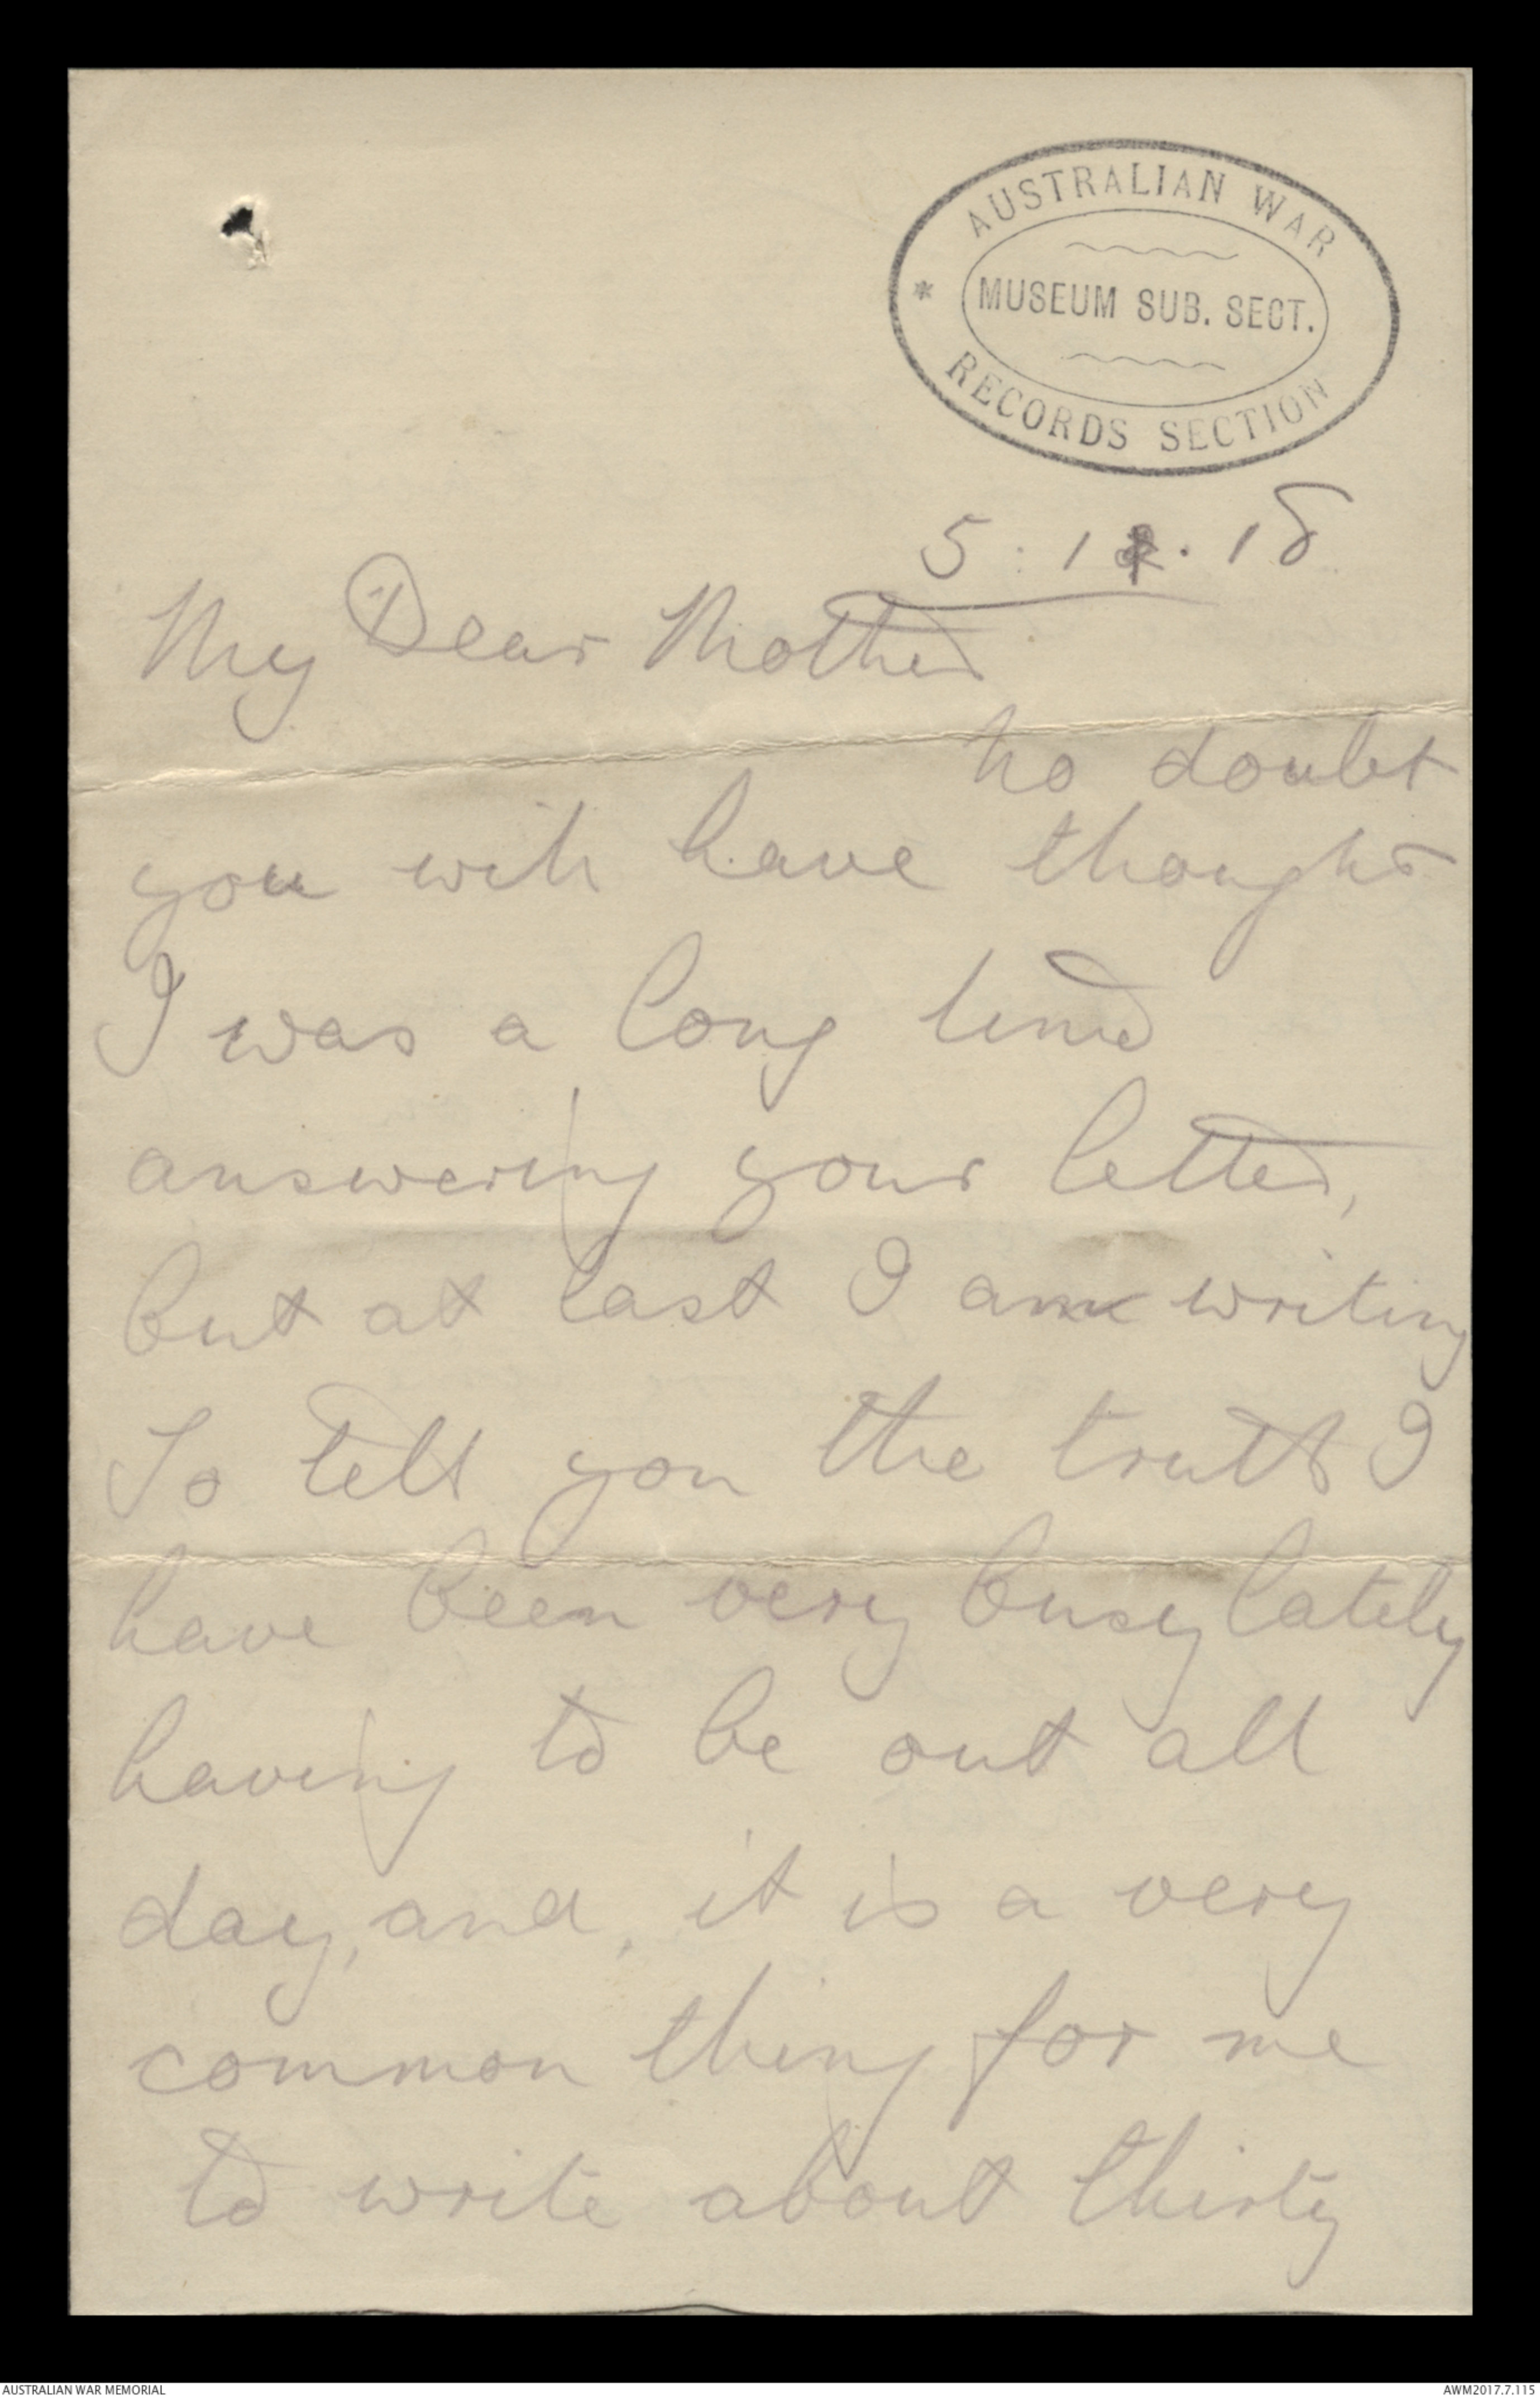 AUSTRALIAN WAR
MUSEUM SUB. SECT.
RECORDS SECTION
5:12.18
My Dear Mother
No doubt
you will have thought
I was a long time
answering your letter,
but at last I am writing
To tell you the truth I
have been very busy lately
having to be out all
day, and, it is a very
common thing for me
to write about thirty
AUSTRALIAN WAR MEMORIAL
AWM2017.7.115